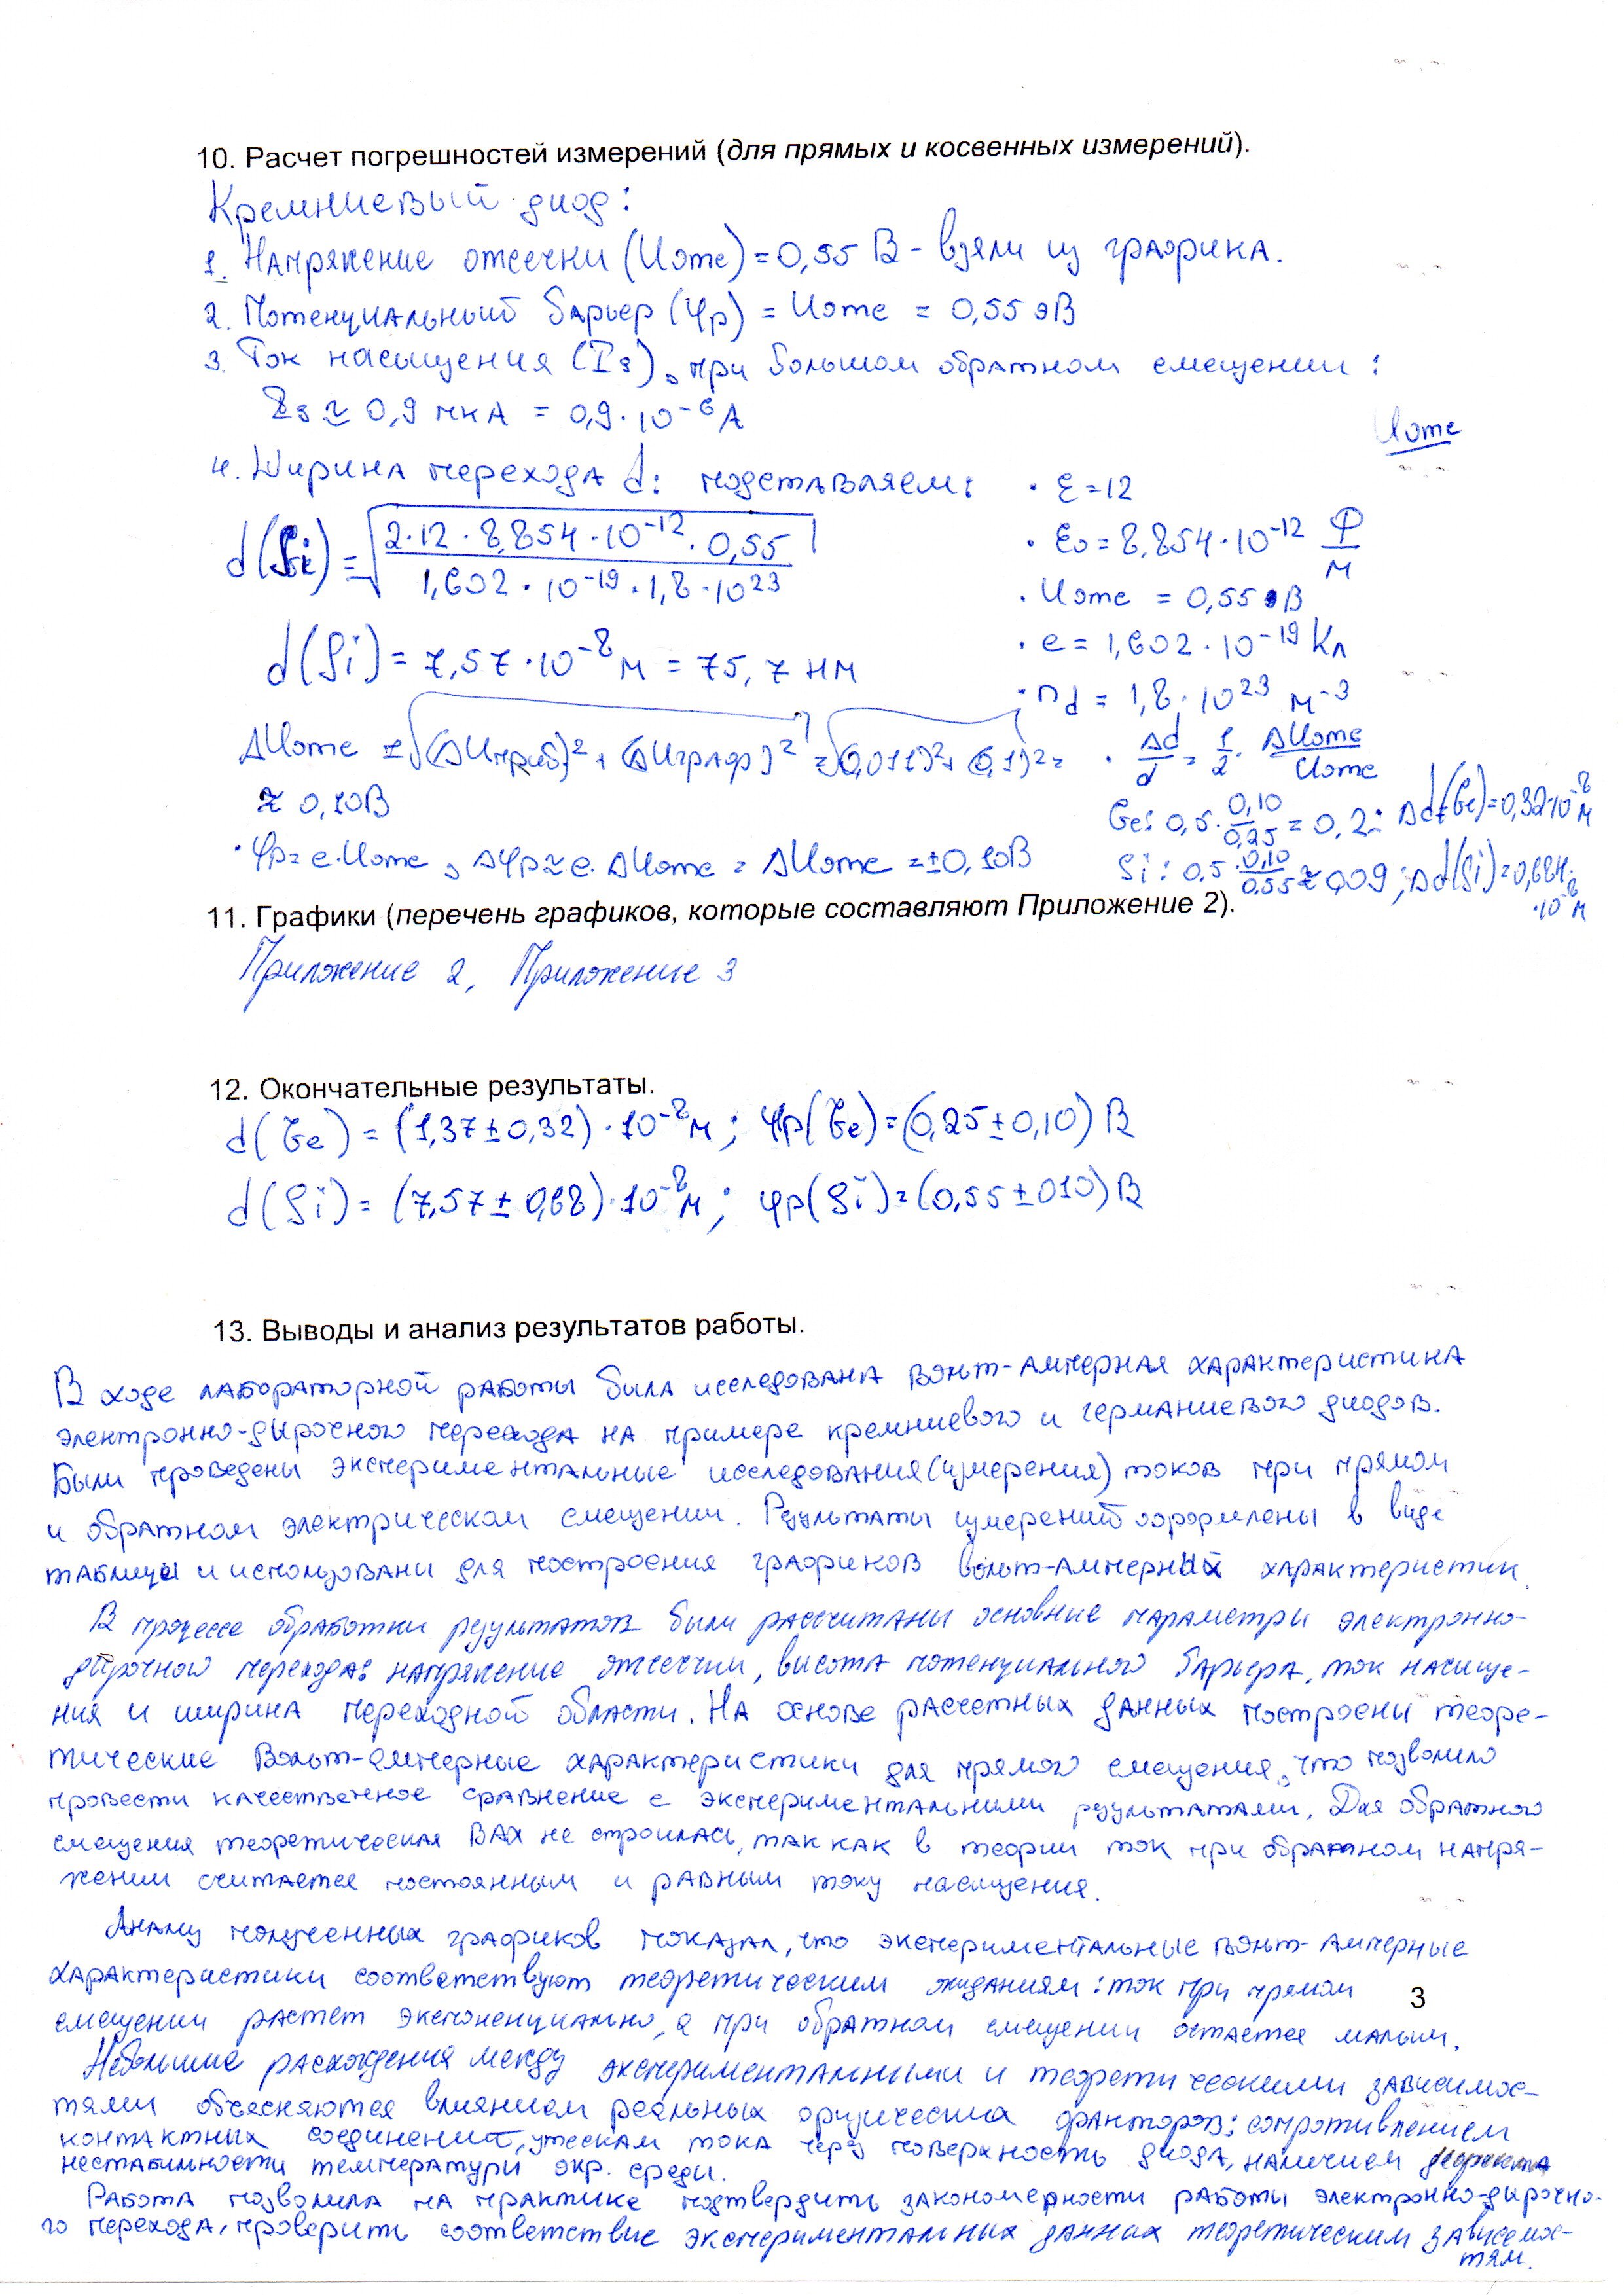 10. Расчет погрешностей измерений (для прямых и косвенных измерений).
Кремниевый диод:
1. Напряжение отсечки (Uотс) = 0,55 В - взяли из графика.
2. Потенциальный барьер (φp) = Uотс = 0,55 эВ
3. Ток насыщения (Is), при большом обратном смещении:
Is ≈ 0,9 мкА = 0,9·10⁻⁶ А
Uотс
4. Ширина перехода d: подставляем:
• ε = 12
d(Si) = √(2·12·8,854·10⁻¹²·0,55 / 1,602·10⁻¹⁹·1,8·10²³)
• ε₀ = 8,854·10⁻¹² Ф/м
• Uотс = 0,55 В
d(Si) = 7,57·10⁻⁸ м = 75,7 нм
• e = 1,602·10⁻¹⁹ Кл
• nd = 1,8·10²³ м⁻³
ΔUотс = √((ΔUприб)² + (ΔUграф)²) = √(0,011)² + (0,1)² =
≈ 0,10 В
• Δd/d = 1/2 · ΔUотс/Uотс
Ge: 0,5·0,10/0,25 = 0,2; Δd(Ge) = 0,32·10⁻⁸ м
• φp = e·Uотс, Δφp ≈ e·ΔUотс = ΔUотс = ±0,10 В
Si: 0,5·0,10/0,55 ≈ 0,09; Δd(Si) = 0,684·10⁻⁸ м
11. Графики (перечень графиков, которые составляют Приложение 2).
Приложение 2, Приложение 3
12. Окончательные результаты.
d(Ge) = (1,37 ± 0,32)·10⁻⁸ м; φp(Ge) = (0,25 ± 0,10) В
d(Si) = (7,57 ± 0,68)·10⁻⁸ м; φp(Si) = (0,55 ± 010) В
13. Выводы и анализ результатов работы.
В ходе лабораторной работы была исследована вольт-амперная характеристика
электронно-дырочного перехода на примере кремниевого и германиевого диодов.
Были проведены экспериментальные исследования (измерения) токов при прямом
и обратном электрическом смещении. Результаты измерений оформлены в виде
таблицы и использованы для построения графиков вольт-амперных характеристик.
В процессе обработки результатов были рассчитаны основные параметры электронно-
дырочного перехода: напряжение отсечки, высота потенциального барьера, ток насыще-
ния и ширина переходной области. На основе расчетных данных построены теоре-
тические вольт-амперные характеристики для прямого смещения, что позволило
провести качественное сравнение с экспериментальными результатами. Для обратного
смещения теоретическая ВАХ не строилась, так как в теории ток при обратном напря-
жении считается постоянным и равным току насыщения.
Анализ полученных графиков показал, что экспериментальные вольт-амперные
характеристики соответствуют теоретическим ожиданиям: ток при прямом
3
смещении растет экспоненциально, а при обратном смещении остается малым.
Небольшие расхождения между экспериментальными и теоретическими зависимос-
тями объясняются влиянием реальных физических факторов: сопротивлением
контактных соединений, утечкам тока через поверхность диода, наличием
нестабильности температуры окр. среды.
Работа позволила на практике подтвердить закономерности работы электронно-дырочно-
го перехода, проверить соответствие экспериментальных данных теоретическим зависимос-
тям.